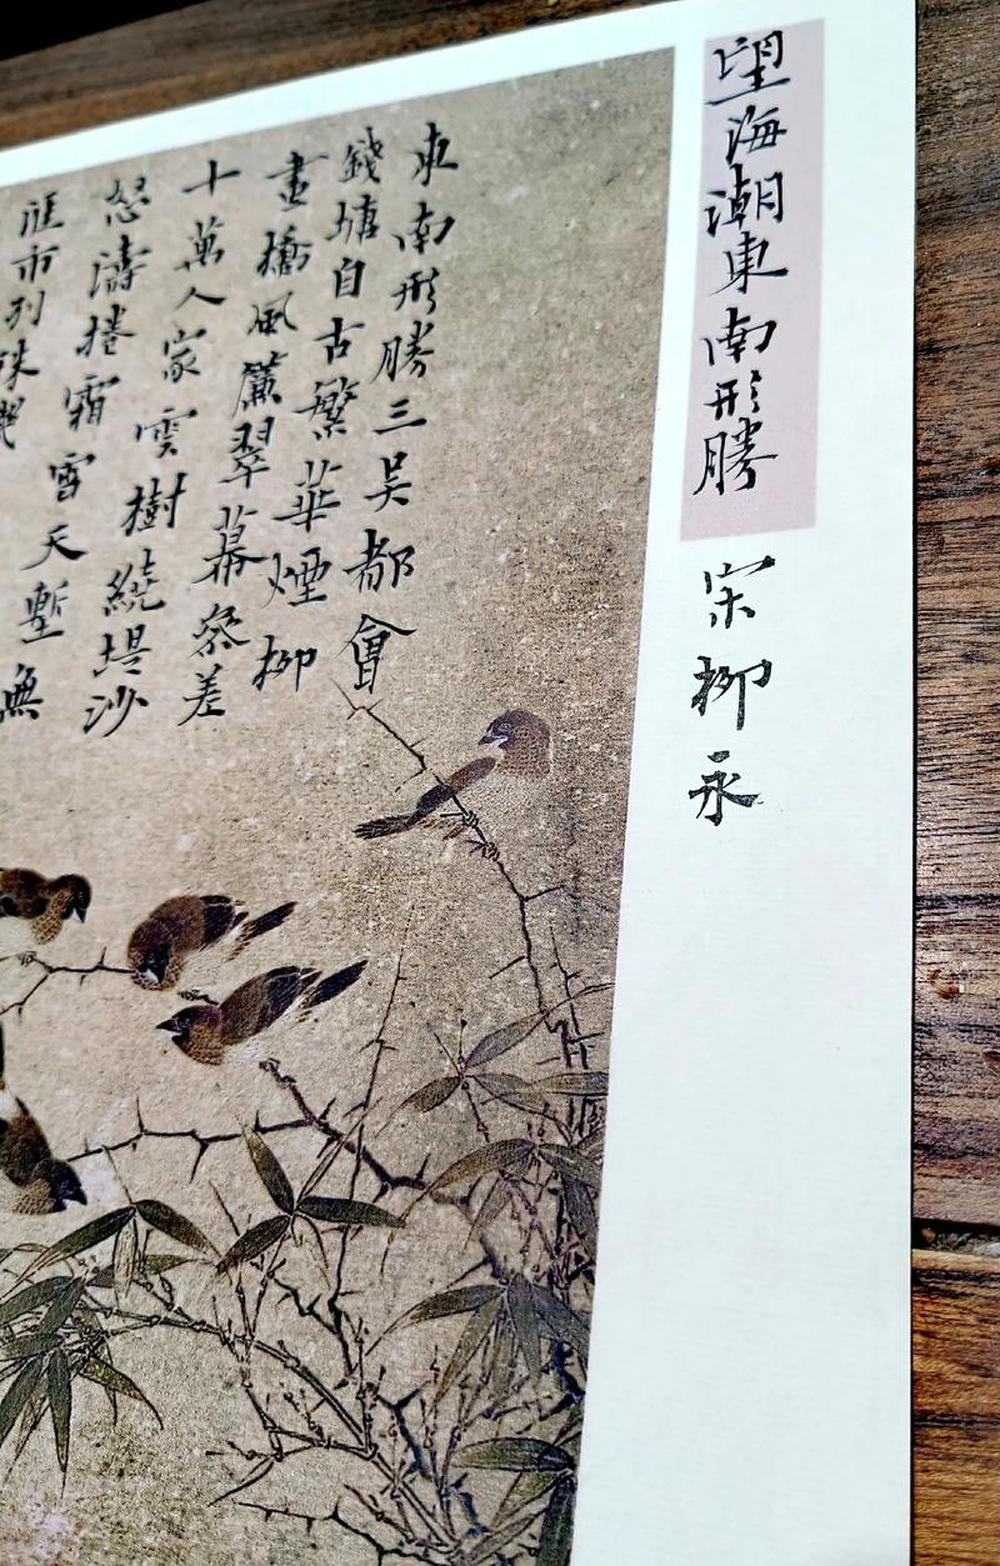 望海潮東南形勝
宋柳永
東南形勝三吴都會
錢塘自古繁華煙柳
畫橋風簾翠幕叅差
十萬人家雲樹繞堤沙
怒濤捲霜雪天塹無
涯市列珠璣